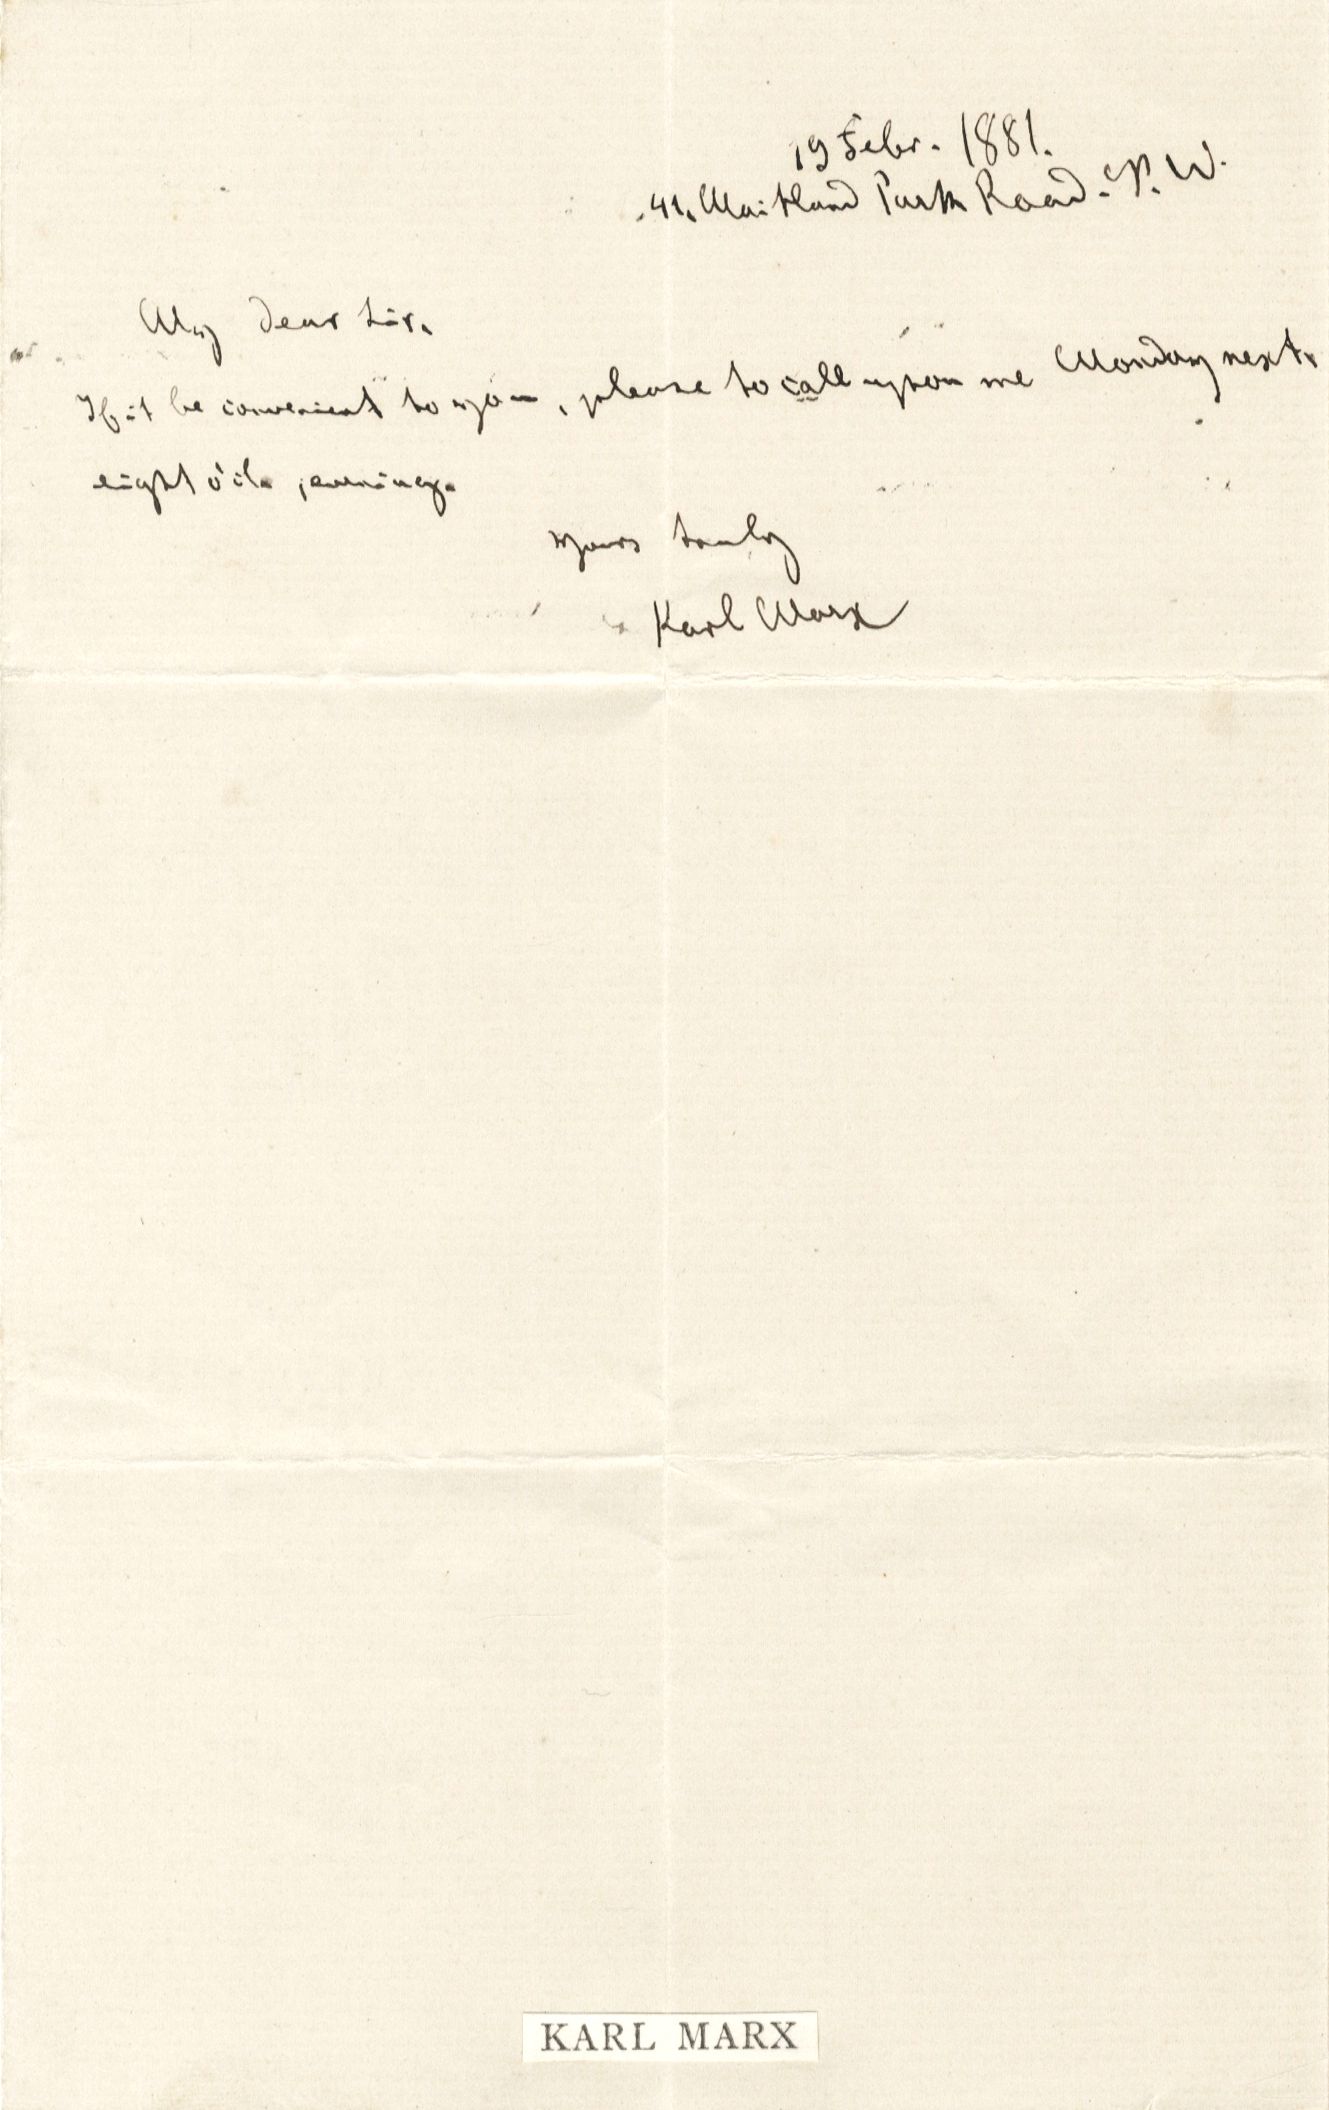 19 Febr. 1881.
41, Maitland Park Road. N. W.
My dear Sir,
If it be convenient to you, please to call upon me Monday next,
eight o'cl., evening.
Yours truly
Karl Marx
KARL MARX